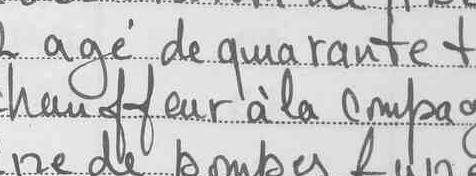 agé de quarante t
hauffeur à la compag
ne de pompes fun